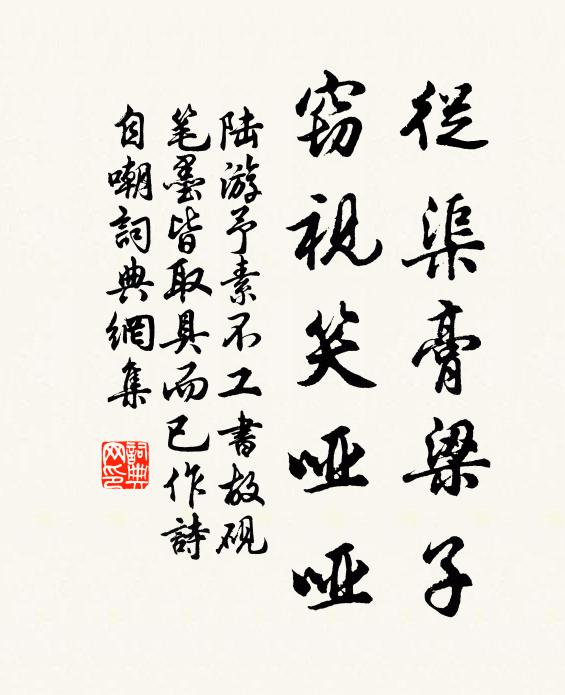 從渠膏粱子
竊視笑啞啞
陆游予素不工書故硯
笔墨皆取具而已作詩
自嘲詞典網集
詞典网印